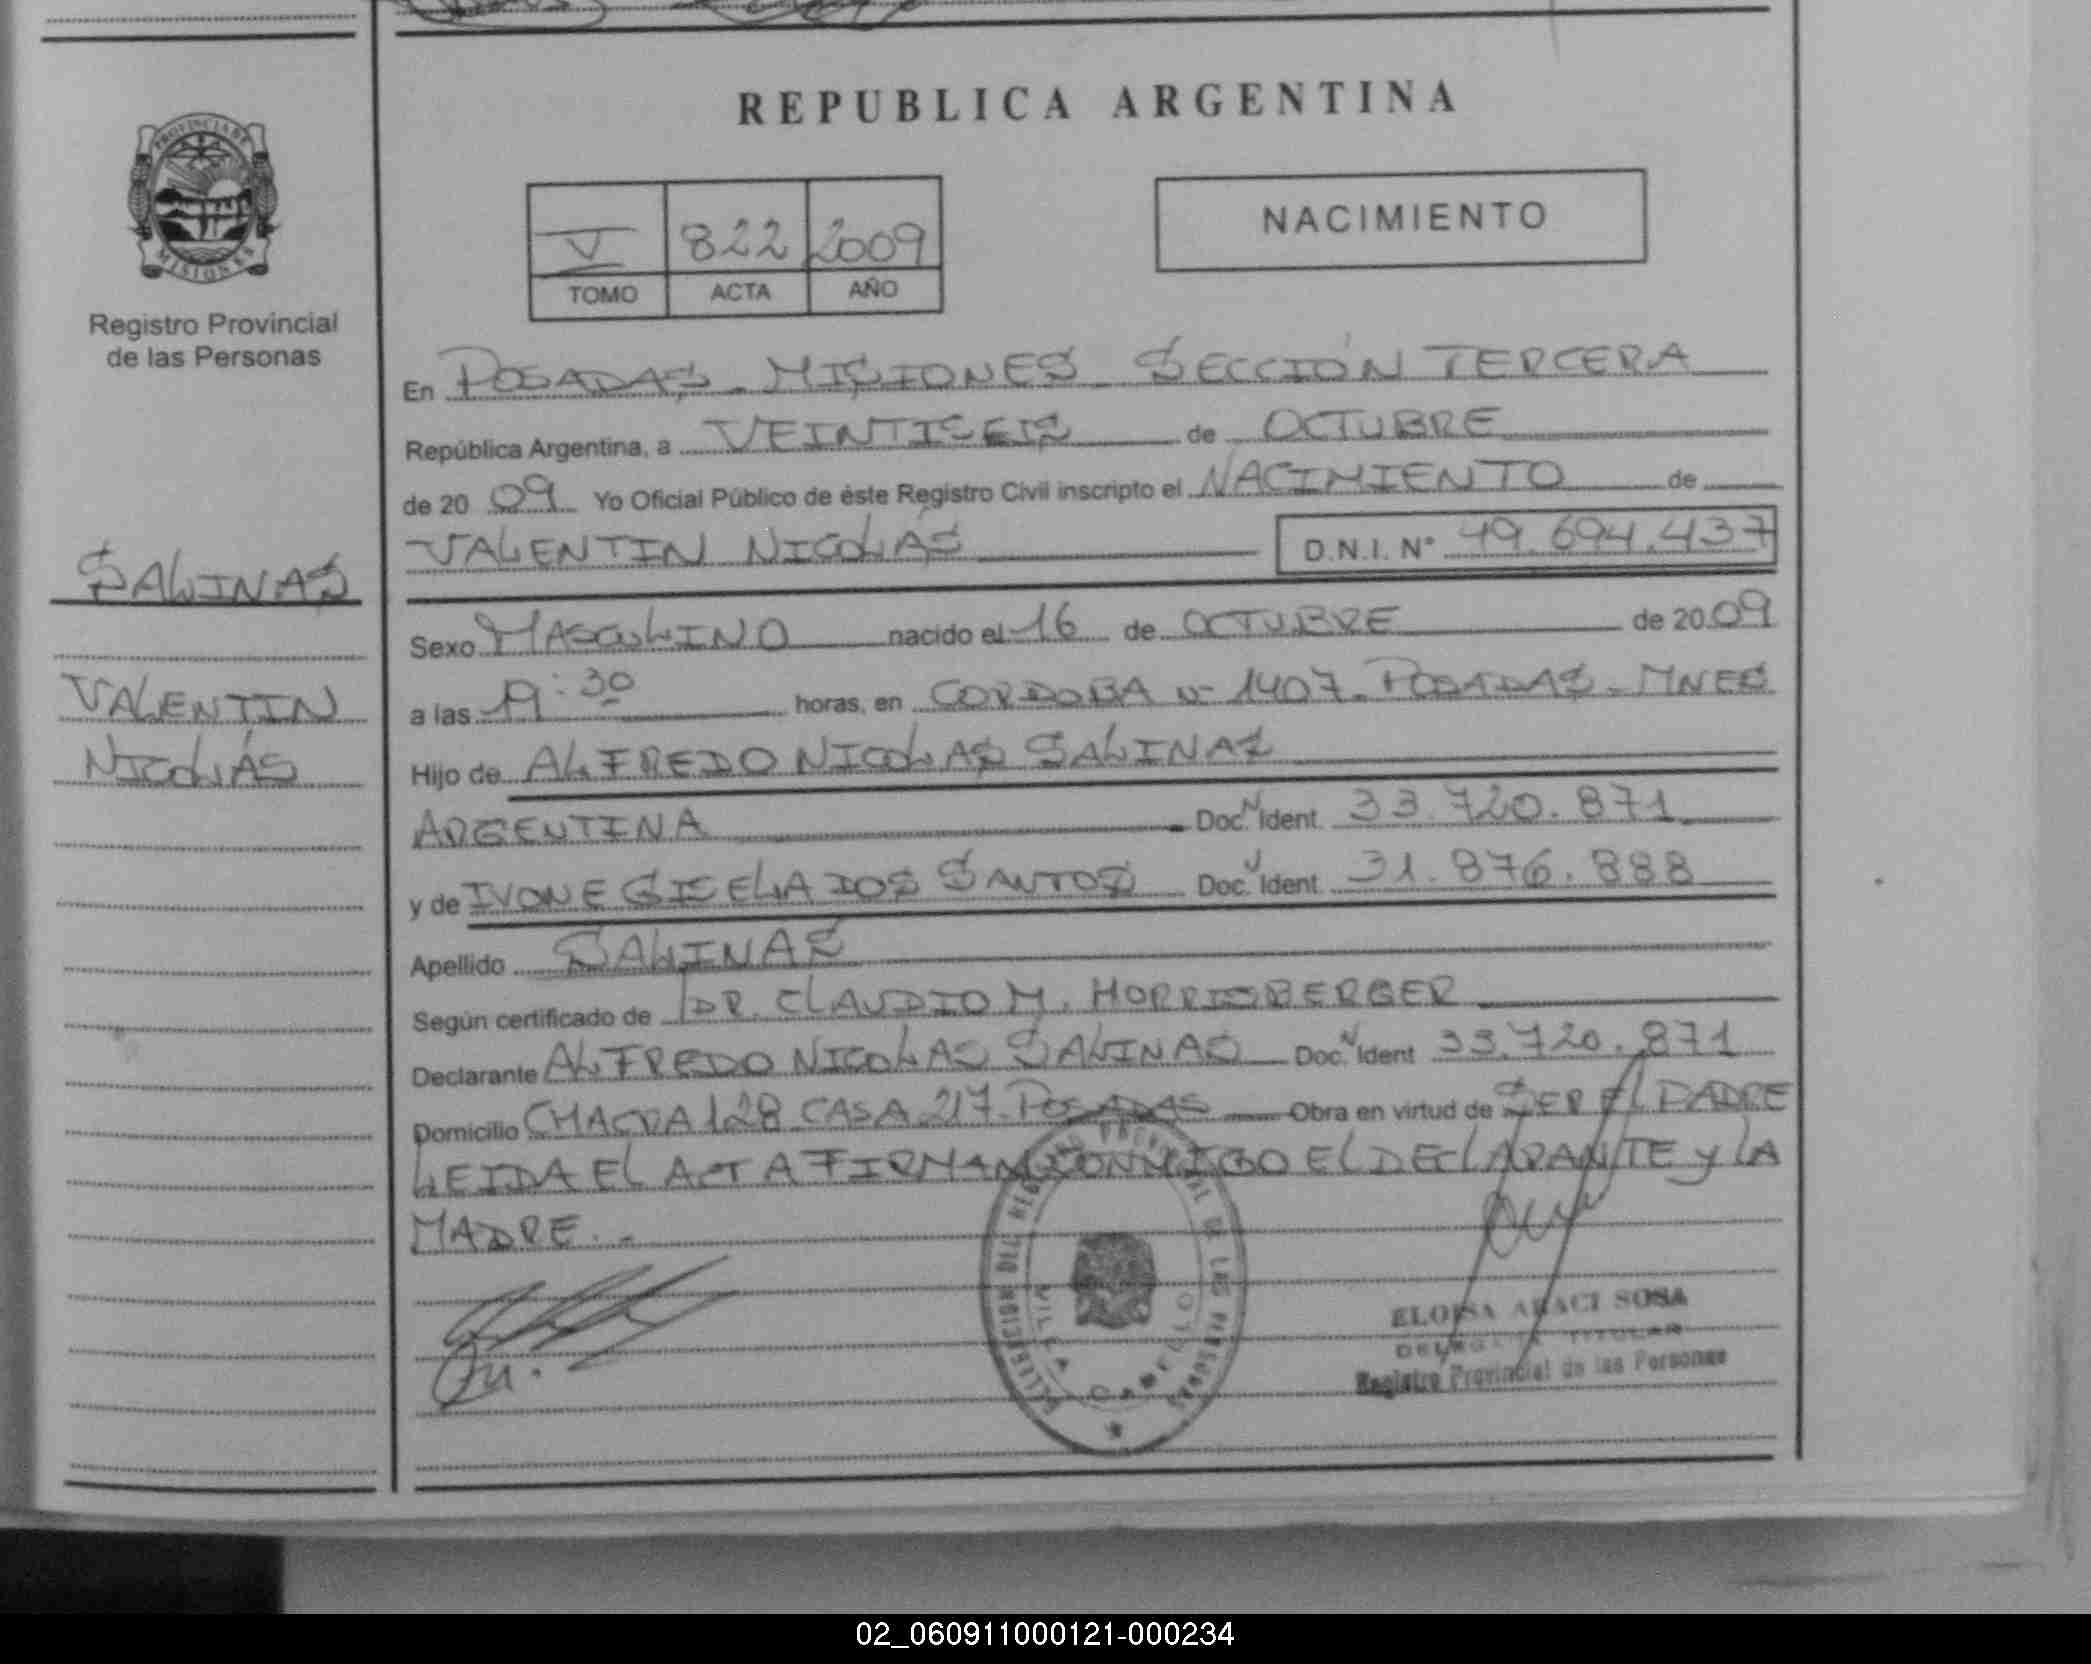 PROVINCIA DE
MISIONES
Registro Provincial
de las Personas
SALINAS
VALENTIN
NICOLÁS
REPUBLICA ARGENTINA
V 822 2009
TOMO ACTA AÑO
NACIMIENTO
En POSADAS - MISIONES - SECCIÓN TERCERA
República Argentina, a VEINTISEIS de OCTUBRE
de 20 09 Yo Oficial Público de éste Registro Civil inscripto el NACIMIENTO de
VALENTIN NICOLÁS D.N.I. N° 49.694.437
Sexo MASCULINO nacido el 16 de OCTUBRE de 20 09
a las 19:30 horas, en CORDOBA N- 1407 - POSADAS - MNES
Hijo de ALFREDO NICOLAS SALINAS
ARGENTINA Doc. Ident. 33.720.871
y de IVONE GISELA DOS SANTOS Doc. Ident. 31.876.888
Apellido SALINAS
Según certificado de DR. CLAUDIO M. HORRISBERGER
Declarante ALFREDO NICOLAS SALINAS Doc. Ident 33.720.871
Domicilio CHACRA 128 CASA 217 - POSADAS Obra en virtud de SER El PADRE
LEIDA EL ACTA FIRMAN CONMIGO El DEClARANTE y lA
MADRE.-
REGISTRO PROVINCIAL DE LAS PERSONAS
VILLA CABELLO
ELOISA ARACI SOSA
DELEGADA TITULAR
Registro Provincial de las Personas
02_060911000121-000234